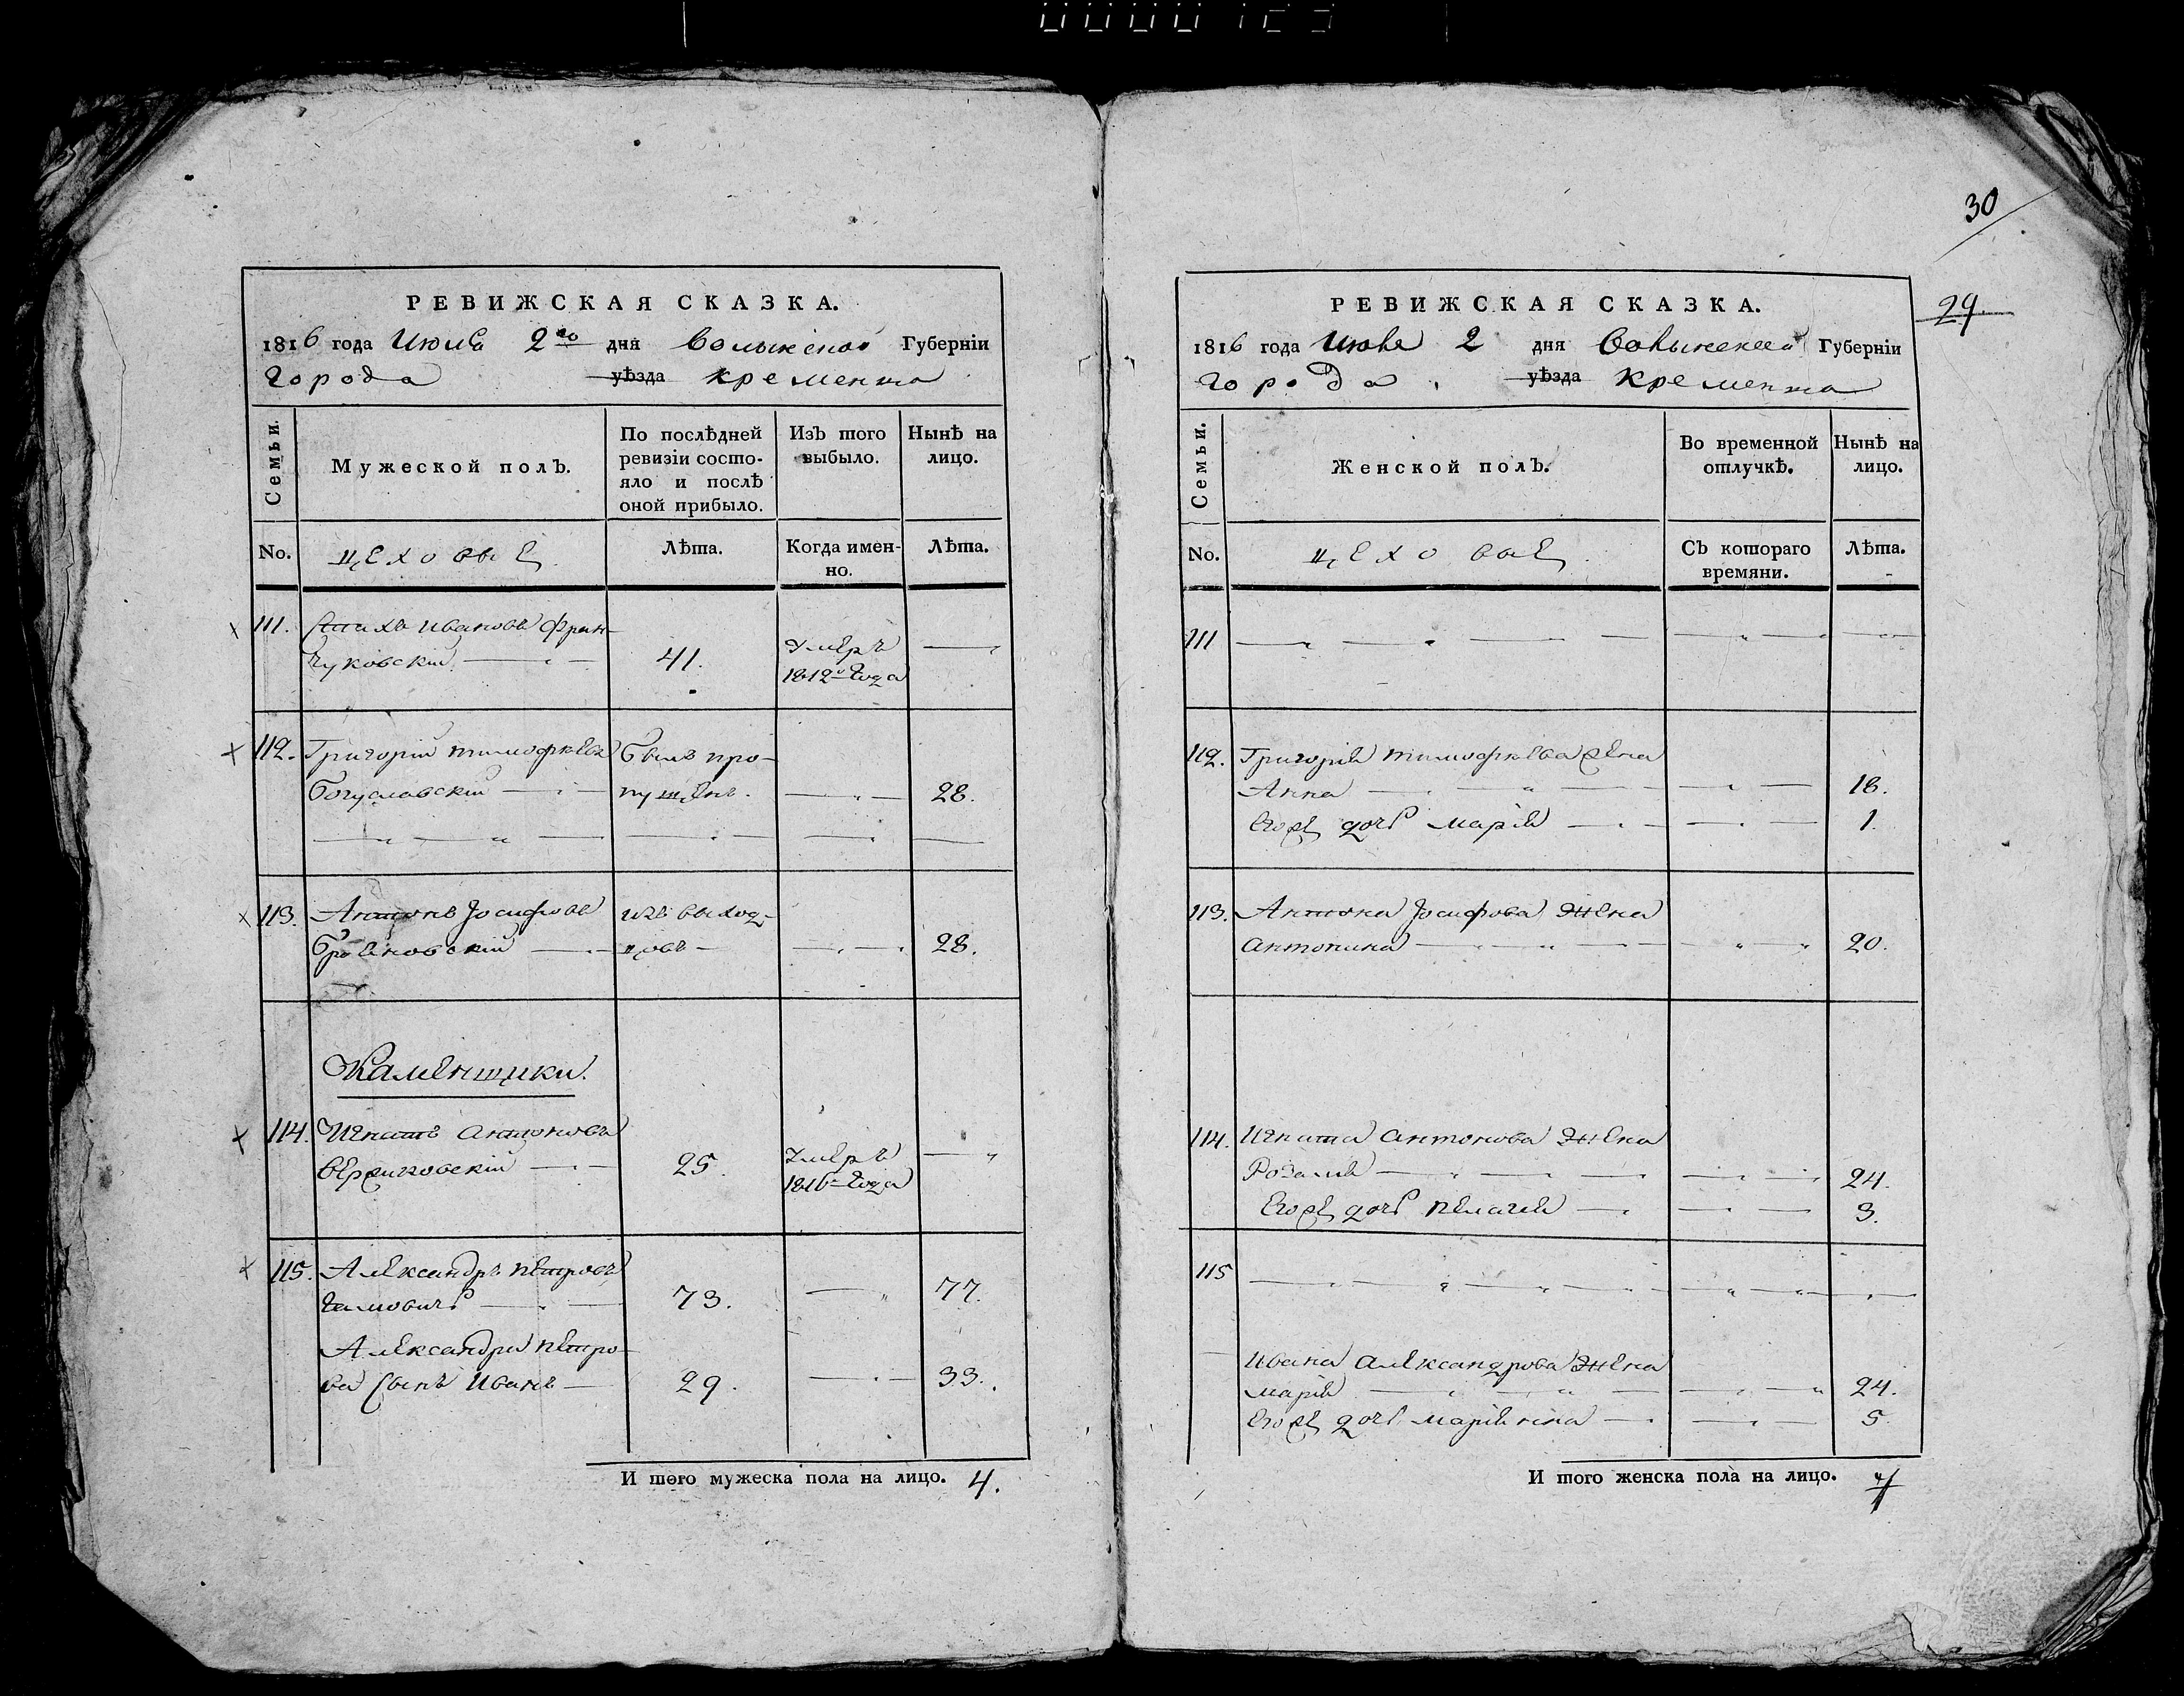 30
29
РЕВИЖСКАЯ СКАЗКА.
1816 года Июля 2го дня Волынской Губерніи
города уѣзда кременца
Семьи.
Мужеской полъ.
По послѣдней ревизіи состо-
яло и послѣ оной прибыло.
Изъ того выбыло.
Нынѣ на лицо.
No.
цеховые
Лѣта.
Когда имен-
но.
Лѣта.
111. Ивановъ Фран-
чуковскій 41. Умеръ
1812го года
112. Григорій тимофѣевъ былъ про-
богуславскій пущенъ. 28.
113. Антонъ Іосифовъ изъ выход-
цовъ 28.
Каменщики.
114. Игнатъ антоновъ
25. Умеръ
1816 года
115. Александръ петровъ
73. 77.
Александра петро-
ва сынъ Иванъ 29. 33.
И того мужеска пола на лицо. 4.
РЕВИЖСКАЯ СКАЗКА.
1816 года Июля 2 дня Волынской Губерніи
города уѣзда кременца
Семьи.
Женской полъ.
Во временной отлучкѣ.
Нынѣ на лицо.
No.
цеховые
Съ котораго
времяни.
Лѣта.
111
112. Григорія тимофѣева жена
Анна 18.
Его же дочь марія 1.
113. Антона Іосифова жена
антонина 20.
114. Игната антонова жена
Розалія 24.
Его же дочь пелагея 3.
115
Ивана александрова жена
марія 24.
Его же дочь маріянна 5
И того женска пола на лицо. 7